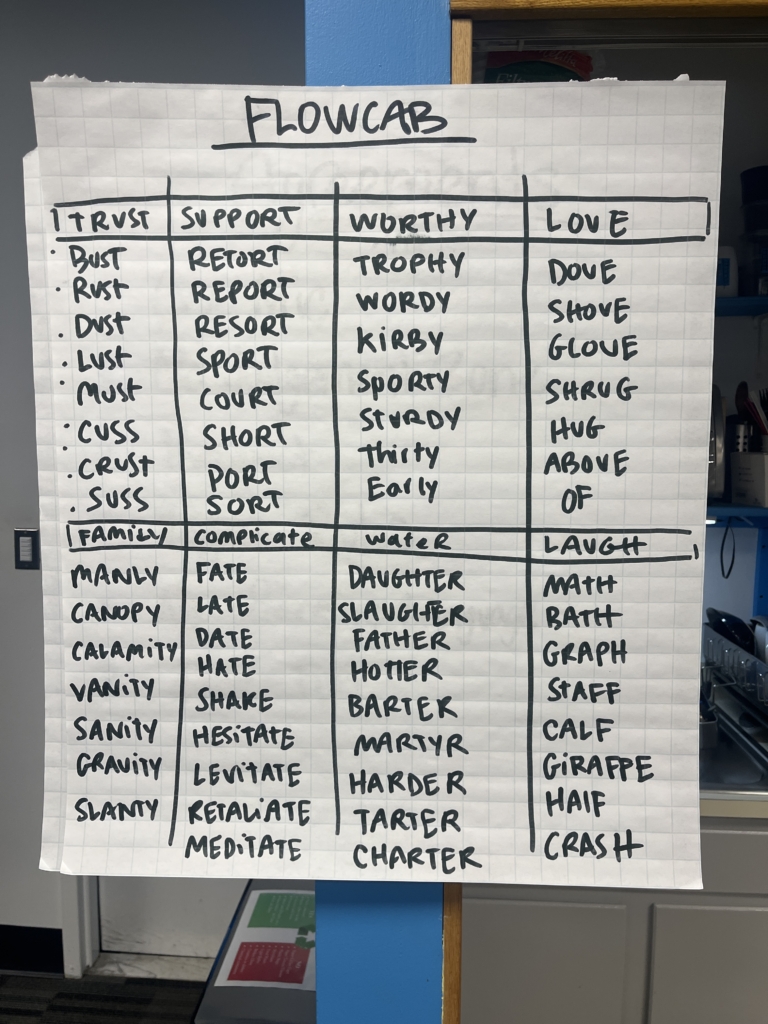 FLOWCAB
TRUST SUPPORT WORTHY LOVE
BUST RETORT TROPHY DOVE
RUST REPORT WORDY SHOVE
DUST RESORT KIRBY GLOVE
LUST SPORT SPORTY SHRUG
MUST COURT STURDY HUG
CUSS SHORT Thirty ABOVE
CRUST PORT Early OF
SUSS SORT
FAMILY complicate wateR LAUGH
MANLY FATE DAUGHTER MATH
CANOPY LATE SLAUGHER BATH
CALAMITY DATE FATHER GRAPH
VANITY HATE HOTTER STAFF
SANITY SHAKE BARTER CALF
GRAVITY HESITATE MARTYR GIRAFFE
SLANTY LEVITATE HARDER HAlF
RETALIATE TARTER CRASH
MEDITATE CHARTER